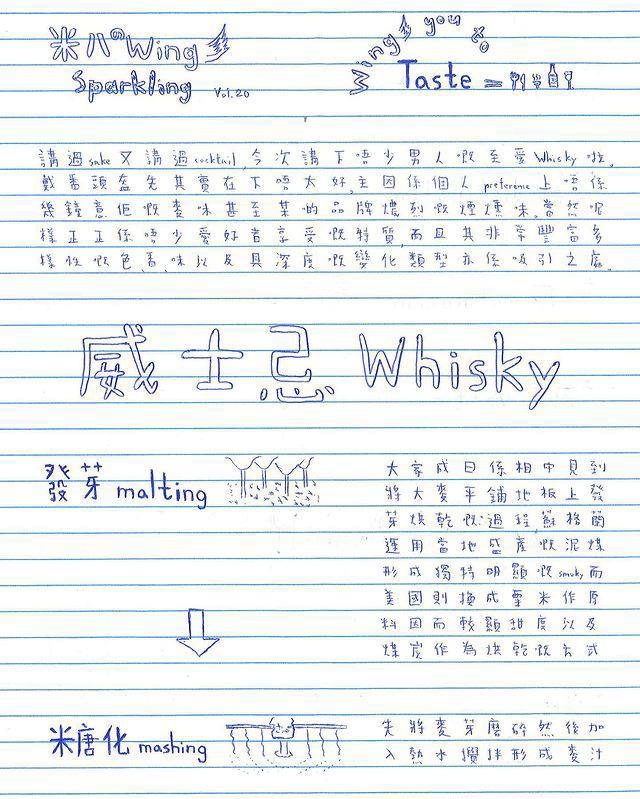 米八のWing
Sparkling Vol.20
Wing you to
Taste
講過sake又講過cocktail,今次講下唔少男人嘅至愛Whisky啦。
戴番頭盔先其實在下唔太好,主因係個人preference上唔係
幾鐘意佢嘅麥味甚至某啲品牌濃烈嘅煙燻味,當然呢
樣正正係唔少愛好者享受嘅特質,而且其非常豐富多
樣性嘅色、香、味以及具深度嘅變化類型亦係吸引之處。
威士忌 Whisky
發芽 malting
大家成日係相中見到
將大麥平鋪地板上發
芽烘乾嘅過程,蘇格蘭
運用當地盛產嘅泥煤
形成獨特明顯嘅smoky而
美國則換成粟米作原
料因而較顯甜度以及
煤炭作為烘乾嘅方式
糖化 mashing
先將麥芽磨碎然後加
入熱水攪拌形成麥汁